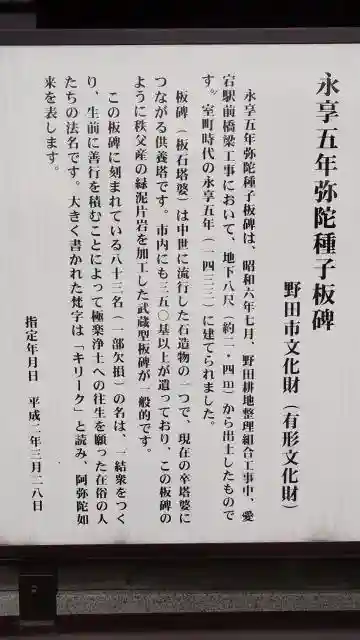 永享五年弥陀種子板碑
野田市文化財（有形文化財）
永享五年弥陀種子板碑は、昭和六年七月、野田耕地整理組合工事中、愛
宕駅前橋梁工事において、地下八尺（約二・四ｍ）から出土したもので
す。室町時代の永享五年（一四三三）に建てられました。
板碑（板石塔婆）は中世に流行した石造物の一つで、現在の卒塔婆に
つながる供養塔です。市内にも三五〇基以上が遺っており、この板碑の
ように秩父産の緑泥片岩を加工した武蔵型板碑が一般的です。
この板碑に刻まれている八十三名（一部欠損）の名は、一結衆をつく
り、生前に善行を積むことによって極楽浄土への往生を願った在俗の人
たちの法名です。大きく書かれた梵字は「キリーク」と読み、阿弥陀如
来を表します。
指定年月日　平成二年三月二八日